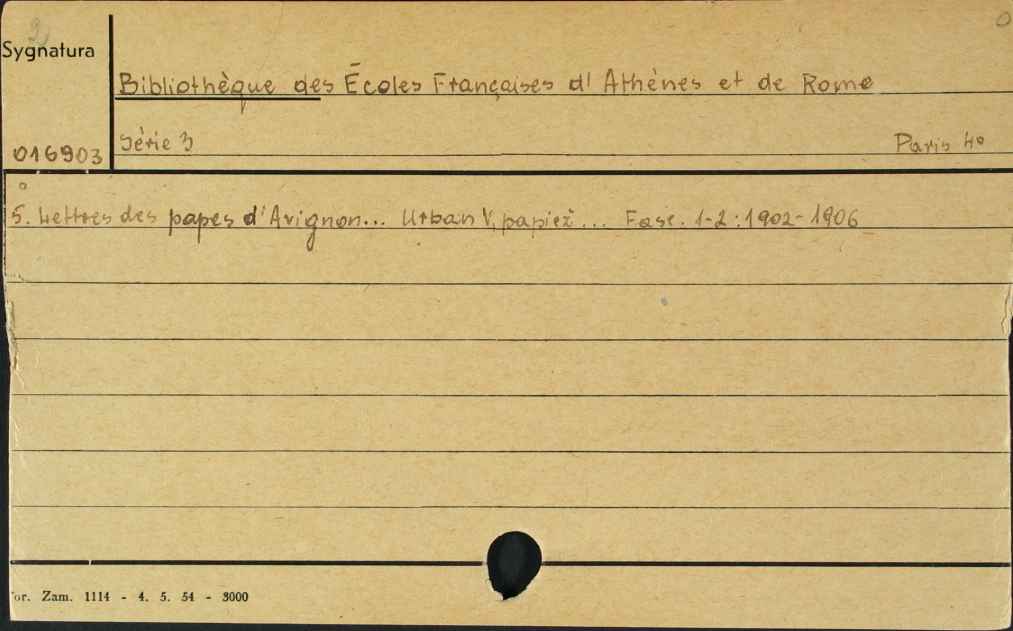 Sygnatura
Bibliothèque des Écoles Françaises d'Athènes et de Rome
016903
Série 3 Paris 4º
5. Lettres des papes d'Avignon... Urban V, papież ... Fasc. 1-2: 1902-1906
or. Zam. 1114 - 4. 5. 54 - 3000